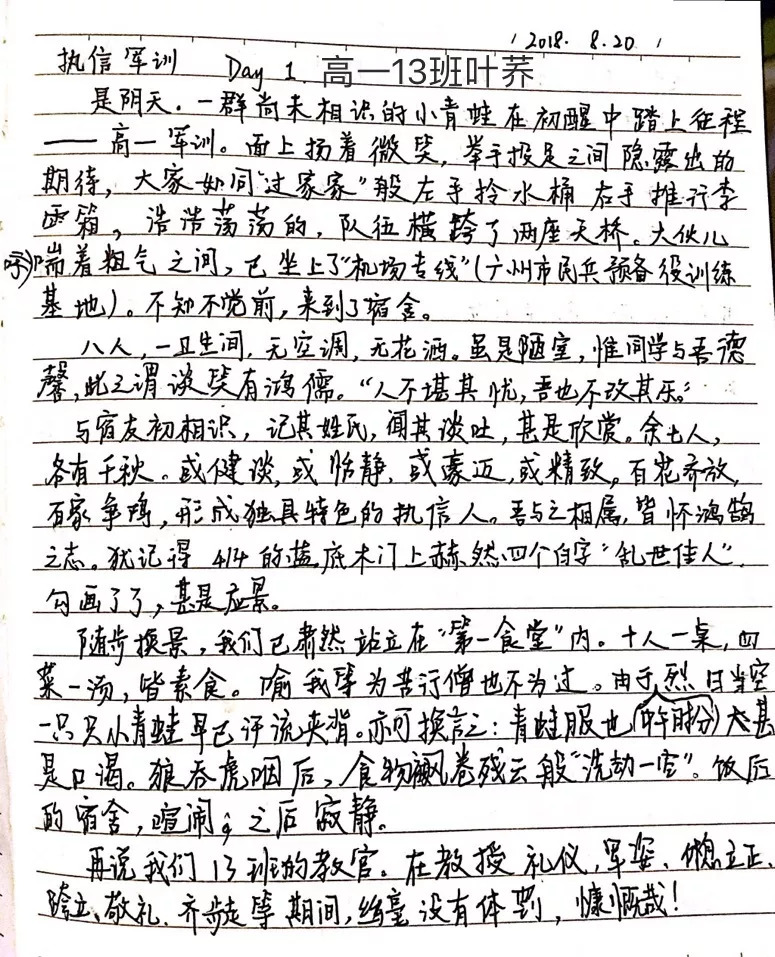 2018. 8.20
执信军训 Day 1 高一13班叶荞
是阴天。一群尚未相识的小青蛙在初醒中踏上征程
——高一军训。面上扬着微笑,举手投足之间隐露出的
期待,大家如同"过家家"般左手拎水桶右手推行李
箱,浩浩荡荡的,队伍横跨了两座天桥。大伙儿
喘着粗气之间,已坐上了"机场专线"(广州市民兵预备役训练
基地)。不知不觉前,来到了宿舍。
八人,一卫生间,无空调,无花洒。虽是陋室,惟同学与吾德
馨,此之谓谈笑有鸿儒。"人不堪其忧,吾也不改其乐。"
与宿友初相识,记其姓氏,闻其谈吐,甚是欣赏。余七人,
各有千秋。或健谈,或恬静,或豪迈,或精致。百花齐放,
百家争鸣,形成独具特色的执信人。吾与之相属,皆怀鸿鹄
之志。犹记得414的蓝底木门上赫然四个白字"乱世佳人",
勾画了了,甚是应景。
随步换景,我们已肃然站立在"第一食堂"内。十人一桌,四
菜一汤,皆素食。喻我等为苦行僧也不为过。由于烈日当空
一只只小青蛙早已汗流夹背。亦可换言之:青蛙服也(中午时分)大甚
是口渴。狼吞虎咽后,食物飙卷残云般"洗劫一空"。饭后
的宿舍,喧闹;之后寂静。
再说我们13班的教官。在教授礼仪,军姿、稍息立正、
跨立、敬礼、齐步走等期间,丝毫没有体罚,慷慨哉!